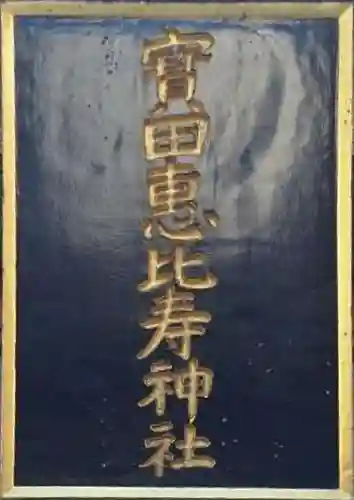 寳田恵比寿神社